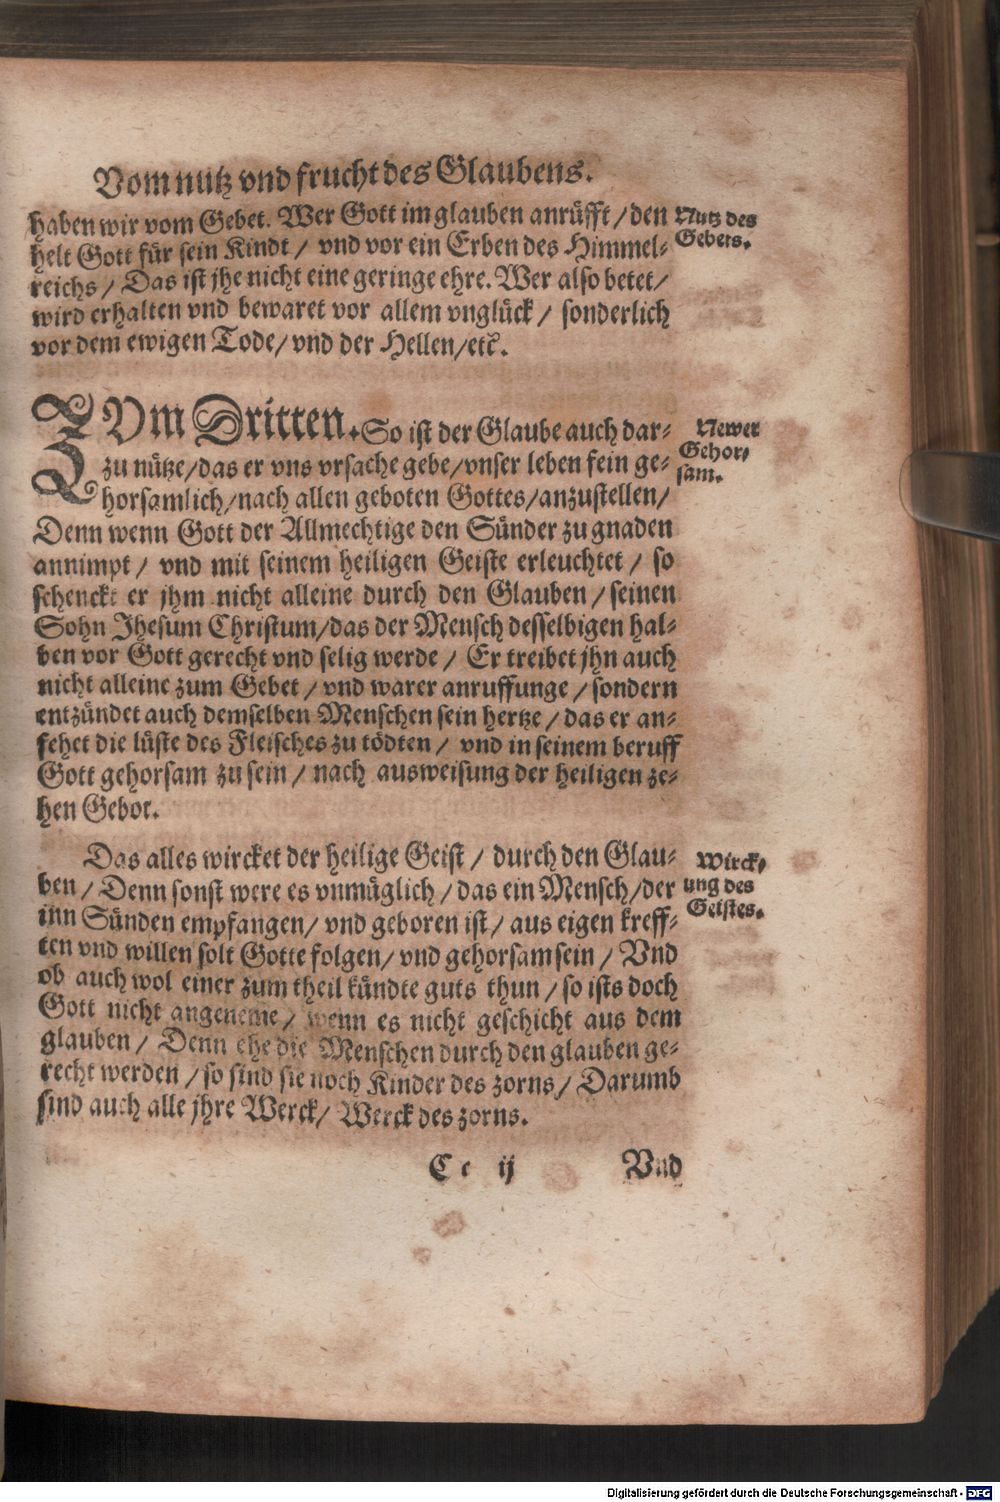 Vom nutz vnd frucht des Glaubens.
haben wir vom Gebet. Wer Gott im glauben anrüfft / den
helt Gott für sein Kindt / vnd vor ein Erben des Himmel-
reichs / Das ist jhe nicht eine geringe ehre. Wer also betet /
wird erhalten vnd bewaret vor allem vnglück / sonderlich
vor dem ewigen Tode / vnd der Hellen / etc.
Nutz des
Gebets.
ZVm Dritten. So ist der Glaube auch dar-
zu nütze / das er vns vrsache gebe / vnser leben fein ge-
horsamlich / nach allen geboten Gottes / anzustellen /
Denn wenn Gott der Allmechtige den Sünder zu gnaden
annimpt / vnd mit seinem heiligen Geiste erleuchtet / so
schenckt er jhm nicht alleine durch den Glauben / seinen
Sohn Jhesum Christum / das der Mensch desselbigen hal-
ben vor Gott gerecht vnd selig werde / Er treibet jhn auch
nicht alleine zum Gebet / vnd warer anruffunge / sondern
entzündet auch demselben Menschen sein hertze / das er an-
fehet die lüste des Fleisches zu tödten / vnd in seinem beruff
Gott gehorsam zu sein / nach ausweisung der heiligen ze-
hen Gebot.
Newer
Gehor-
sam.
Das alles wircket der heilige Geist / durch den Glau-
ben / Denn sonst were es vnmüglich / das ein Mensch / der
inn Sünden empfangen / vnd geboren ist / aus eigen kreff-
ten vnd willen solt Gotte folgen / vnd gehorsam sein / Vnd
ob auch wol einer zum theil kündte guts thun / so ists doch
Gott nicht angeneme / wenn es nicht geschicht aus dem
glauben / Denn ehe die Menschen durch den glauben ge-
recht werden / so sind sie noch Kinder des zorns / Darumb
sind auch alle jhre Werck / Werck des zorns.
Wirck-
ung des
Geistes.
C c ij
Vnd
Digitalisierung gefördert durch die Deutsche Forschungsgemeinschaft - DFG